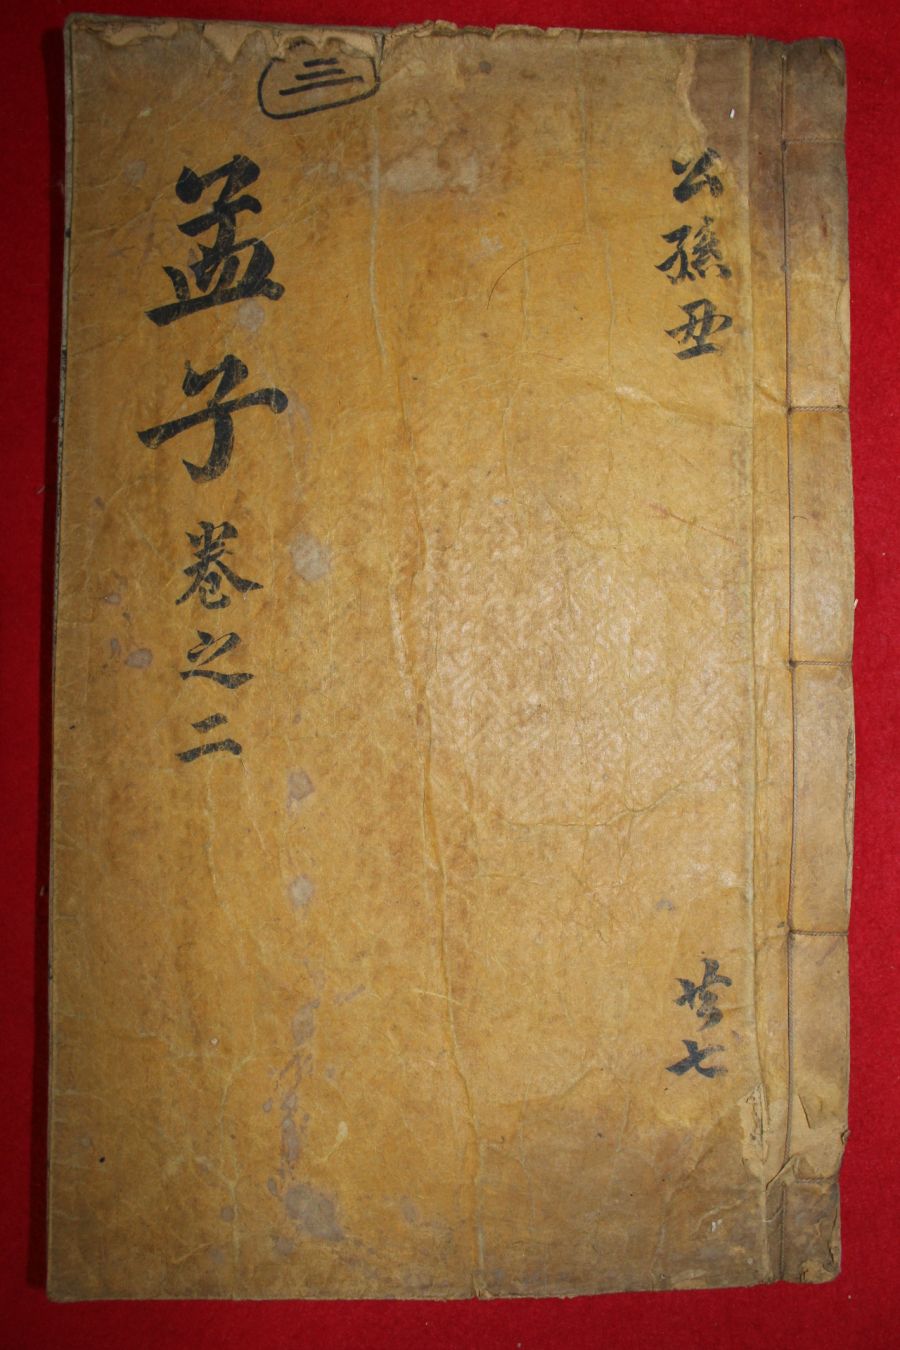 三
公孫丑
共七
孟子卷之二